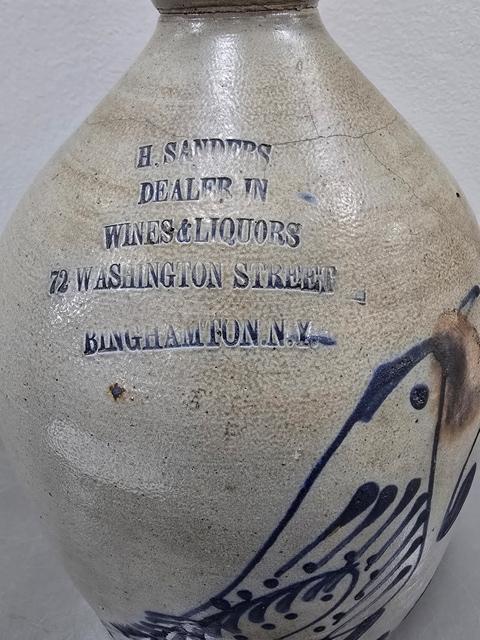 H. SANDERS
DEALER IN
WINES & LIQUORS
72 WASHINGTON STREET
BINGHAMTON. N.Y.